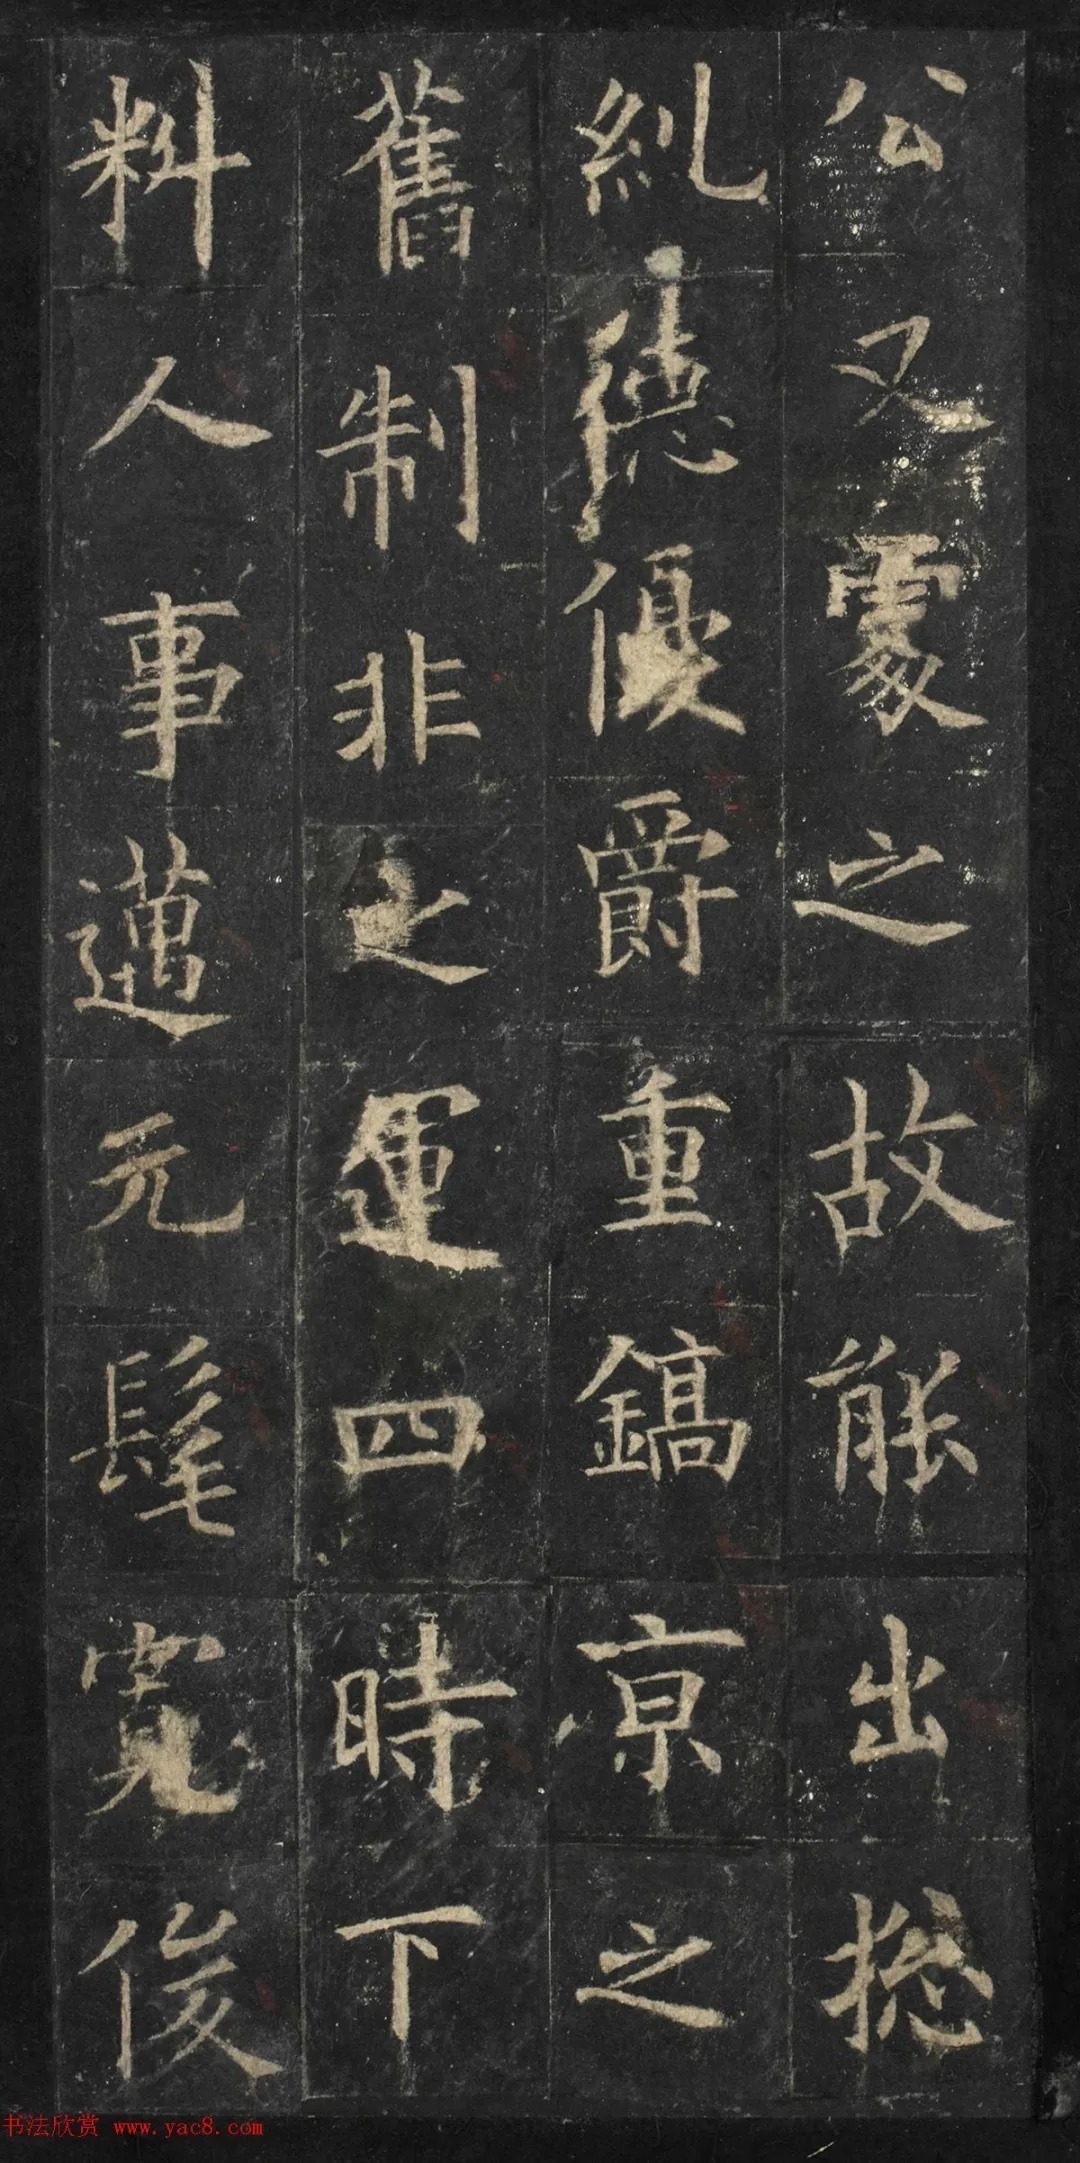 公又處之故能出揔
糺德優爵重鎬京之
舊制非之運四時下
料人事邁元髦寛俊
书法欣赏 www.yac8.com